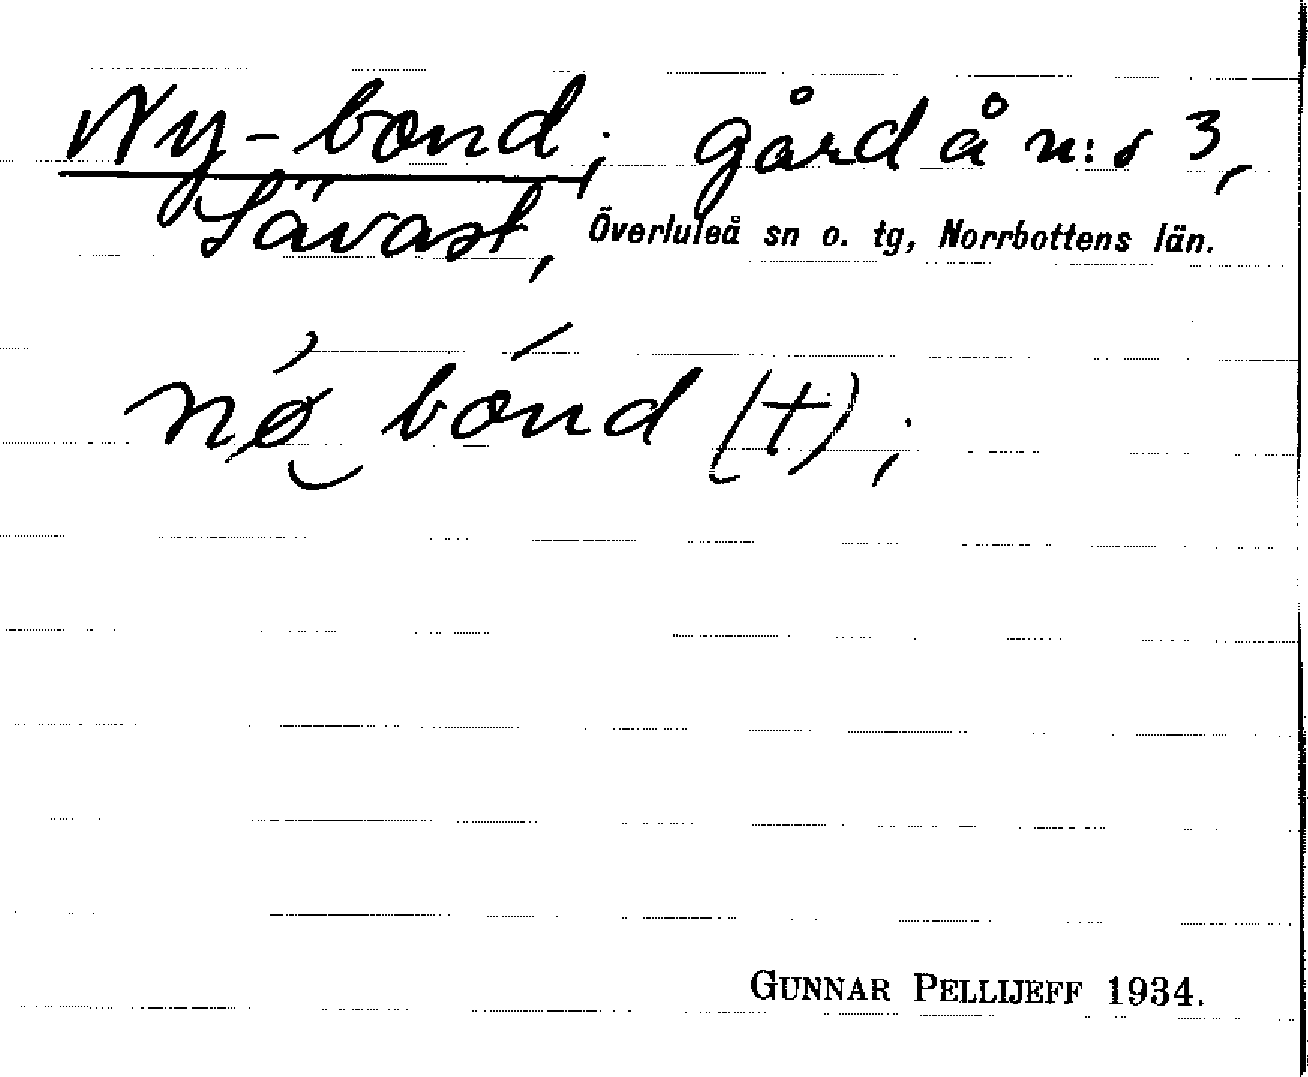 Ny-bond, gård å n:o 3,
Sävast, Överluleå sn o. tg, Norrbottens län.
nǿ̯ bónd (+),
GUNNAR PELLIJEFF 1934.